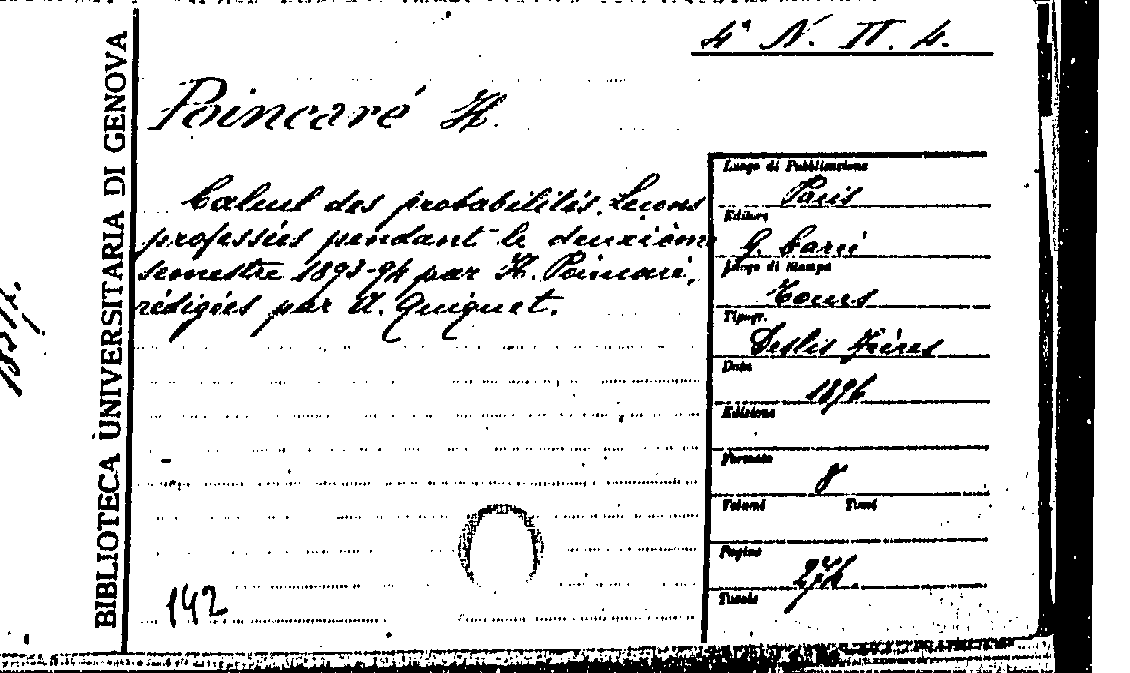 4ª N. II. 4.
BIBLIOTECA UNIVERSITARIA DI GENOVA
Poincaré H.
Calcul des probabilités. Leçons
professées pendant le deuxième
semestre 1893-94 par H. Poincaré,
rédigées par A. Quiquet.
142
Luogo di Pubblicazione
Paris
Editore
G. Carré
Luogo di Stampa
Tours
Tipogr.
Deslis Frères
Data
1896
Edizione
Formato
8
Volumi Tomi
Pagine
274
Tavole